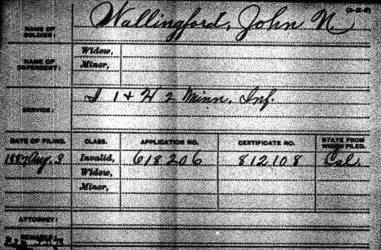 (3-2-8)
NAME OF SOLDIER: Wallingford, John N.
NAME OF DEPENDENT: Widow,
Minor,
SERVICE: I 1 & H 2 Minn. Inf.
DATE OF FILING. CLASS. APPLICATION NO. CERTIFICATE NO. STATE FROM WHICH FILED.
1887 Aug. 3 Invalid, 618206 812108 Cal.
Widow,
Minor,
ATTORNEY:
REMARKS: